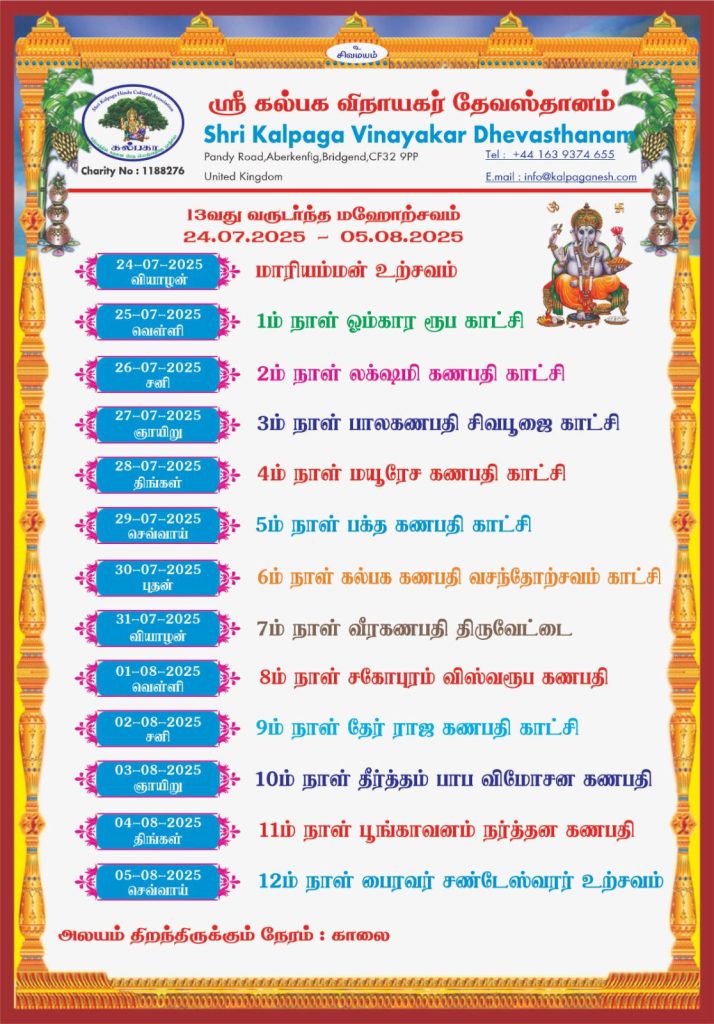 உ
சிவமயம்
Shri Kalpaga Hindu Cultural Association
கல்பகா
Charity No : 1188276
ஸ்ரீ கல்பக விநாயகர் தேவஸ்தானம்
Shri Kalpaga Vinayakar Dhevasthanam
Pandy Road,Aberkenfig,Bridgend,CF32 9PP
United Kingdom
Tel : +44 163 9374 655
E.mail : info@kalpaganesh.com
13வது வருடர்ந்த மஹோற்சவம்
24.07.2025 – 05.08.2025
24-07-2025
வியாழன்
மாரியம்மன் உற்சவம்
25-07-2025
வெள்ளி
1ம் நாள் ஓம்கார ரூப காட்சி
26-07-2025
சனி
2ம் நாள் லக்ஷ்மி கணபதி காட்சி
27-07-2025
ஞாயிறு
3ம் நாள் பாலகணபதி சிவபூஜை காட்சி
28-07-2025
திங்கள்
4ம் நாள் மயூரேச கணபதி காட்சி
29-07-2025
செவ்வாய்
5ம் நாள் பக்த கணபதி காட்சி
30-07-2025
புதன்
6ம் நாள் கல்பக கணபதி வசந்தோற்சவம் காட்சி
31-07-2025
வியாழன்
7ம் நாள் வீரகணபதி திருவேட்டை
01-08-2025
வெள்ளி
8ம் நாள் சகோபுரம் விஸ்வரூப கணபதி
02-08-2025
சனி
9ம் நாள் தேர் ராஜ கணபதி காட்சி
03-08-2025
ஞாயிறு
10ம் நாள் தீர்த்தம் பாப விமோசன கணபதி
04-08-2025
திங்கள்
11ம் நாள் பூங்காவனம் நர்த்தன கணபதி
05-08-2025
செவ்வாய்
12ம் நாள் பைரவர் சண்டேஸ்வரர் உற்சவம்
அலயம் திறந்திருக்கும் நேரம் : காலை